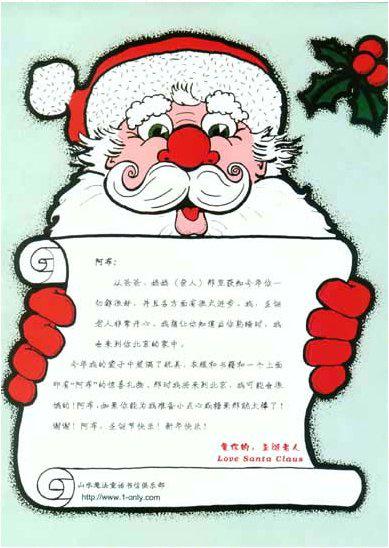 阿布:
从爸爸、妈妈(亲人)那里获知今年你一
切都很好,并且各方面有很大进步。我,圣诞
老人非常开心。我想让你知道当你熟睡时,我
会来到你北京的家中。
今年我的袋子中装满了玩具、衣服和书籍和一个上面
印有"阿布"的惊喜礼物。那时我将来到北京,我可能会很
饿的!阿布,如果你能为我准备小点心或糖果那就太棒了!
谢谢!阿布,圣诞节快乐!新年快乐!
爱你的,圣诞老人
Love Santa Claus
山水魔法童话书信俱乐部
http://www.1-only.com